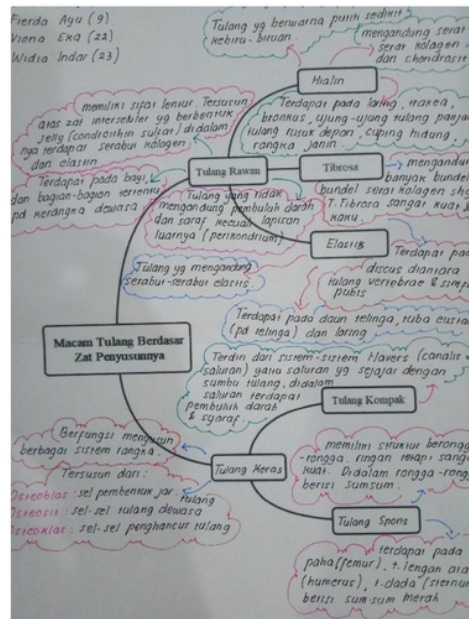 Fierda Ayu (9)
Viona Eka (22)
Widia Indar (23)
Tulang yg berwarna putih sedikit
kebiru-biruan.
mengandung serat
serat kolagen
dan chondrasit
Hialin
memiliki sifat lentur. Tersusun
atas zat interseluler yg berbentuk
jelly (condrothin sulfat) didalam
nya terdapat serabut kolagen
dan elastin
Terdapat pada laring, trakea,
bronkus, ujung-ujung tulang panja
tulang rusuk depan, cuping hidung,
rangka janin
Tulang Rawan
Tibrosa
mengandun
banyak bundel
bundel serat kolagen sh
T. Fibrosa sangat kuat &
kaku.
Terdapat pada bayi,
dan bagian-bagian tertentu
pd kerangka dewasa
Tulang yang tidak
mengandung pembuluh darah
dan saraf kecuali lapisan
luarnya (perikondrium)
Elastis
Terdapat pad
discus diantara
tulang vertebrae & simp
pubis
Tulang yg mengandung
serabut-serabut elastis
Terdapat pada daun telinga, tuba eusta
(pd telinga) dan laring
Macam Tulang Berdasar
Zat Penyusunnya
Terdiri dari sistem-sistem Havers (canalis
saluran) yaitu saluran yg sejajar dengan
sumbu tulang, didalam
saluran terdapat
pembuluh darah
& syaraf.
Tulang Kompak
Berfungsi menyusun
berbagai sistem rangka.
Tulang Keras
memiliki struktur berongga
-rongga. ringan tetapi sanga
kuat. Didalam rongga-rong
berisi sumsum.
Tersusun dari:
Osteoblas: sel pembentuk jar. tulang
Osteosit: sel-sel tulang dewasa
Osteoklas: sel-sel penghancur tulang
Tulang Spons
terdapat pada
paha (femur), t. lengan ata
(humerus), t. dada (sternum
berisi sum-sum merah